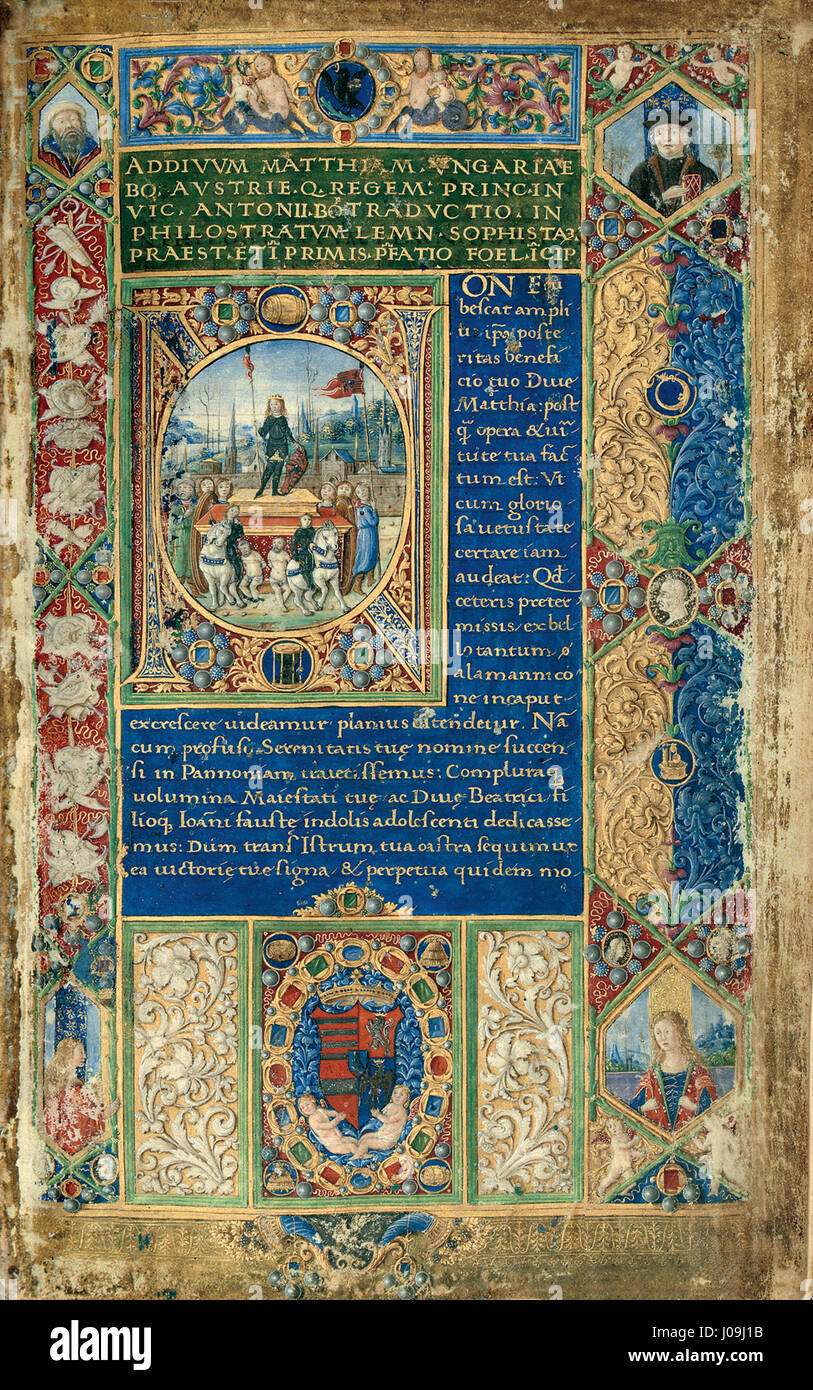 ADDIVVM MATTHIAM. VNGARIAE
BO; AVSTRIE. Q. REGEM: PRINC. IN
VIC. ANTONII. BO; TRADVCTIO. IN
PHILOSTRATVM. LEMN. SOPHISTA3.
PRAEST. ETI PRIMIS. PFATIO FOEL. ICIP
N
ON
bescat ampli
poste
ritas benefi
cio tuo Diue
Matthia: post
opera & uir
tute tua fac
tum est: Vt
cum glorio
sa uetustate
certare iam
audeat: Qd
ceteris preter
missis ex bel
lo tantum
alamannico
ne in caput
excrescere uideamur planius ostendetur. Nā
cum profusi Serenitatis tuę nomine succen
si in Pannoniam traiecissemus: Complura q;
uolumina Maiestati tuę ac Diuę Beatrici fi
lioq; Ioāni faustę indolis adolescenti dedicasse
mus: Dum trans Istrum tua castra sequimur
ea uictorię tuę signa & perpetua quidem mo
alamy
Image ID: J09J1B
www.alamy.com